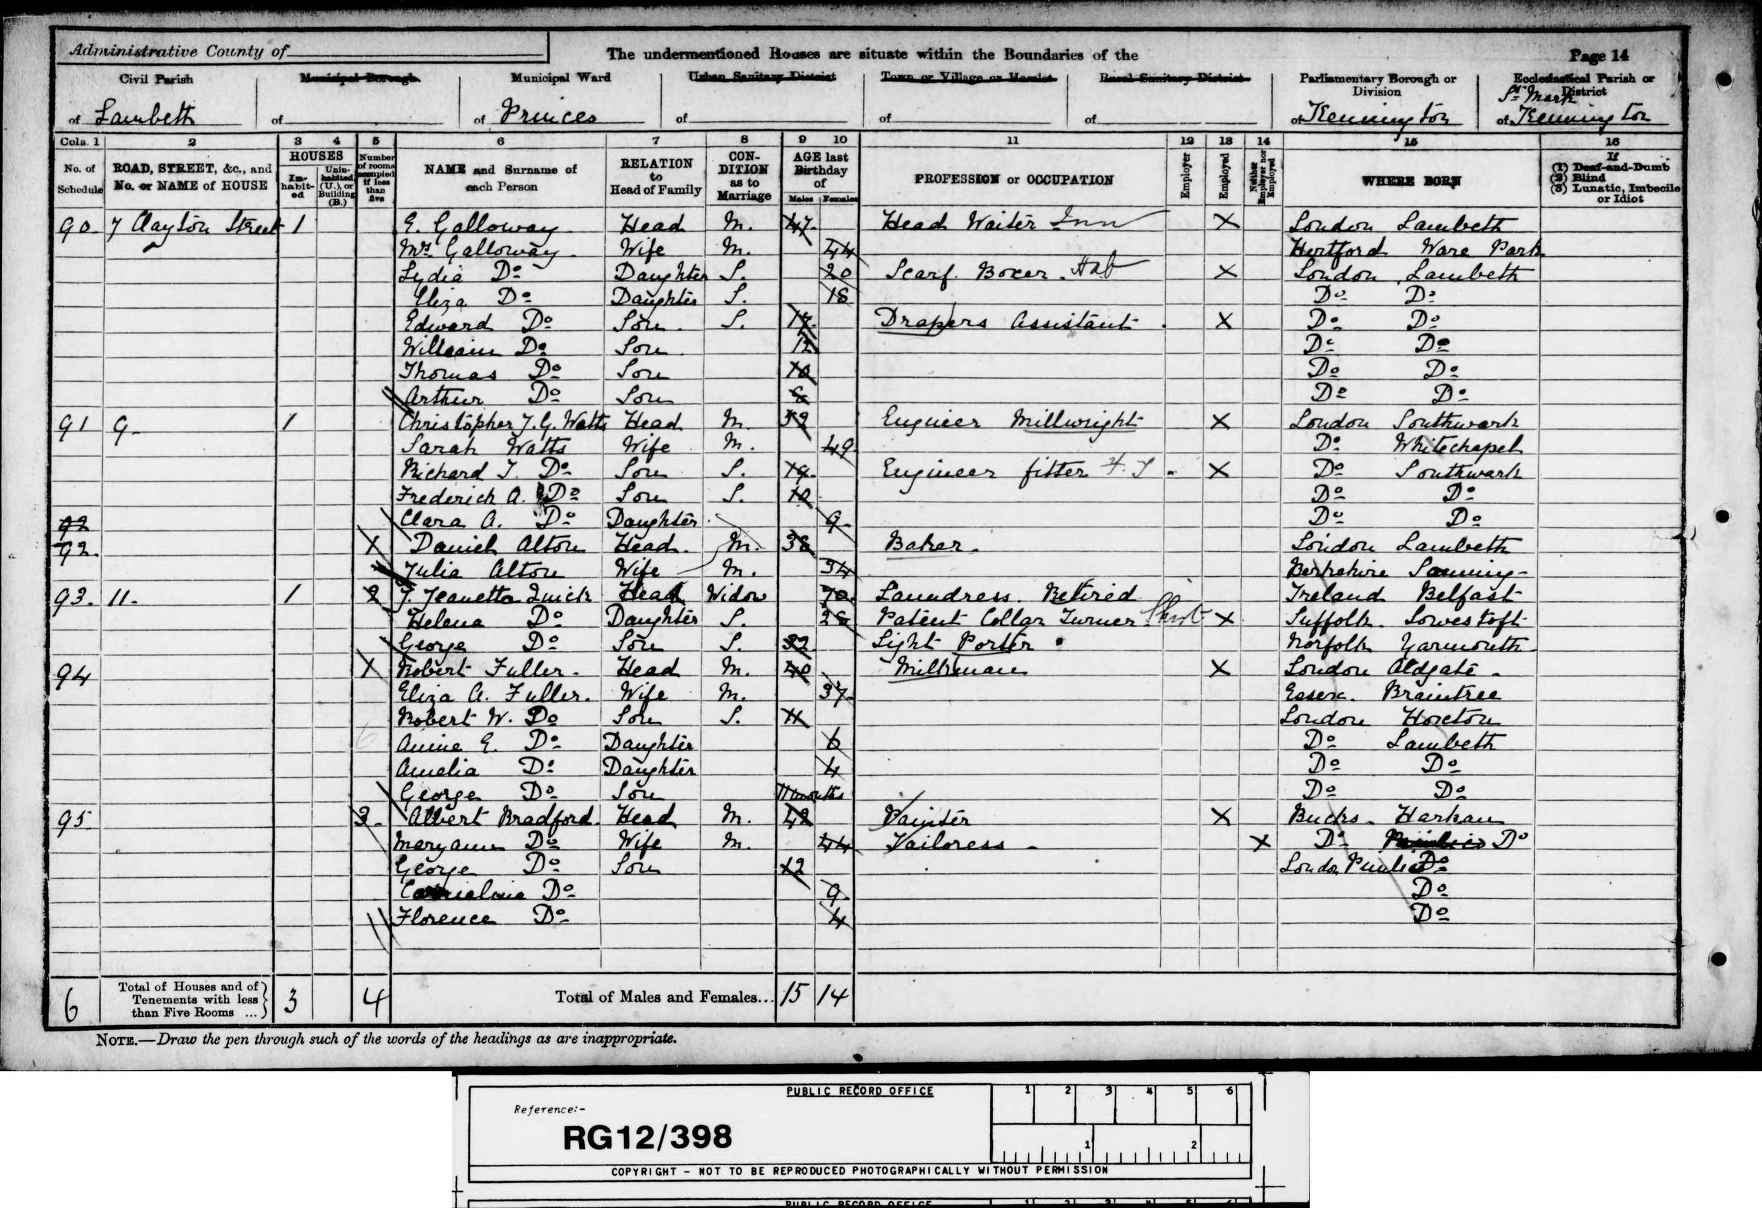 Administrative County of
The undermentioned Houses are situate within the Boundaries of the
Page 14
Civil Parish
Municipal Borough
Municipal Ward
Urban Sanitary District
Town or Village or Hamlet
Rural Sanitary District
Parliamentary Borough or Division
Ecclesiastical Parish or District
of Lambeth
of
of Princes
of
of
of
of Kennington
St. Mark
of Kennington
Cols. 1 2 3 4 5 6 7 8 9 10 11 12 13 14 15 16
No. of Schedule
ROAD, STREET, &c., and No. or NAME of HOUSE
HOUSES
Inhabited
Uninhabited (U.), or Building (B.)
Number of rooms occupied if less than five
NAME and Surname of each Person
RELATION to Head of Family
CONDITION as to Marriage
AGE last Birthday of
Males
Females
PROFESSION or OCCUPATION
Employer
Employed
Neither Employer nor Employed
WHERE BORN
If
(1) Deaf-and-Dumb
(2) Blind
(3) Lunatic, Imbecile or Idiot
90. 7 Clayton Street 1 E. Galloway Head M. 47 Head Waiter Inn X London Lambeth
Mrs Galloway Wife M. 44 Hertford Ware Park
Lydia Do Daughter S. 20 Scarf Boxer X London Lambeth
Eliza Do Daughter S. 18 Do Do
Edward Do Son S. 17 Drapers Assistant X Do Do
William Do Son 12 Do Do
Thomas Do Son 10 Do Do
Arthur Do Son Do Do
91 9 1 Christopher J. G. Watts Head M. Engineer Millwright X London Southwark
Sarah Watts Wife M. 49 Do Whitechapel
Richard T. Do Son S. 19 Engineer fitter X Do Southwark
Frederick A. Do Son S. 10 Do Do
Clara A. Do Daughter 9 Do Do
92
92. X Daniel Alton Head M. 38 Baker London Lambeth
Julia Alton Wife M. 34 Berkshire Sonning
93. 11. 1 2 J. Jeanetta Quick Head Widow 70 Laundress Retired Ireland Belfast
Helena Do Daughter S. 28 Patent Collar Turner Shirt X Suffolk Lowestoft
George Do Son S. 32 Light Porter Norfolk Yarmouth
94 X Robert Fuller Head M. 40 Milkman X London Aldgate
Eliza A. Fuller Wife M. 37 Essex Braintree
Robert W. Do Son S. 11 London Hoxton
Annie E. Do Daughter 6 Do Lambeth
Amelia Do Daughter 4 Do Do
George Do Son 11 months Do Do
95 3 Albert Bradford Head M. 42 Painter X Bucks
Maryann Do Wife M. 44 Tailoress X Do Do
George Do Son 12 London Pimlico Do
Do 9 Do
Florence Do 4 Do
6
Total of Houses and of Tenements with less than Five Rooms ...
3
4
Total of Males and Females...
15 14
NOTE.—Draw the pen through such of the words of the headings as are inappropriate.
PUBLIC RECORD OFFICE
1 2 3 4 5 6
Reference:-
RG12/398
1 2
COPYRIGHT - NOT TO BE REPRODUCED PHOTOGRAPHICALLY WITHOUT PERMISSION
PUBLIC RECORD OFFICE
1 2 3 4 5 6